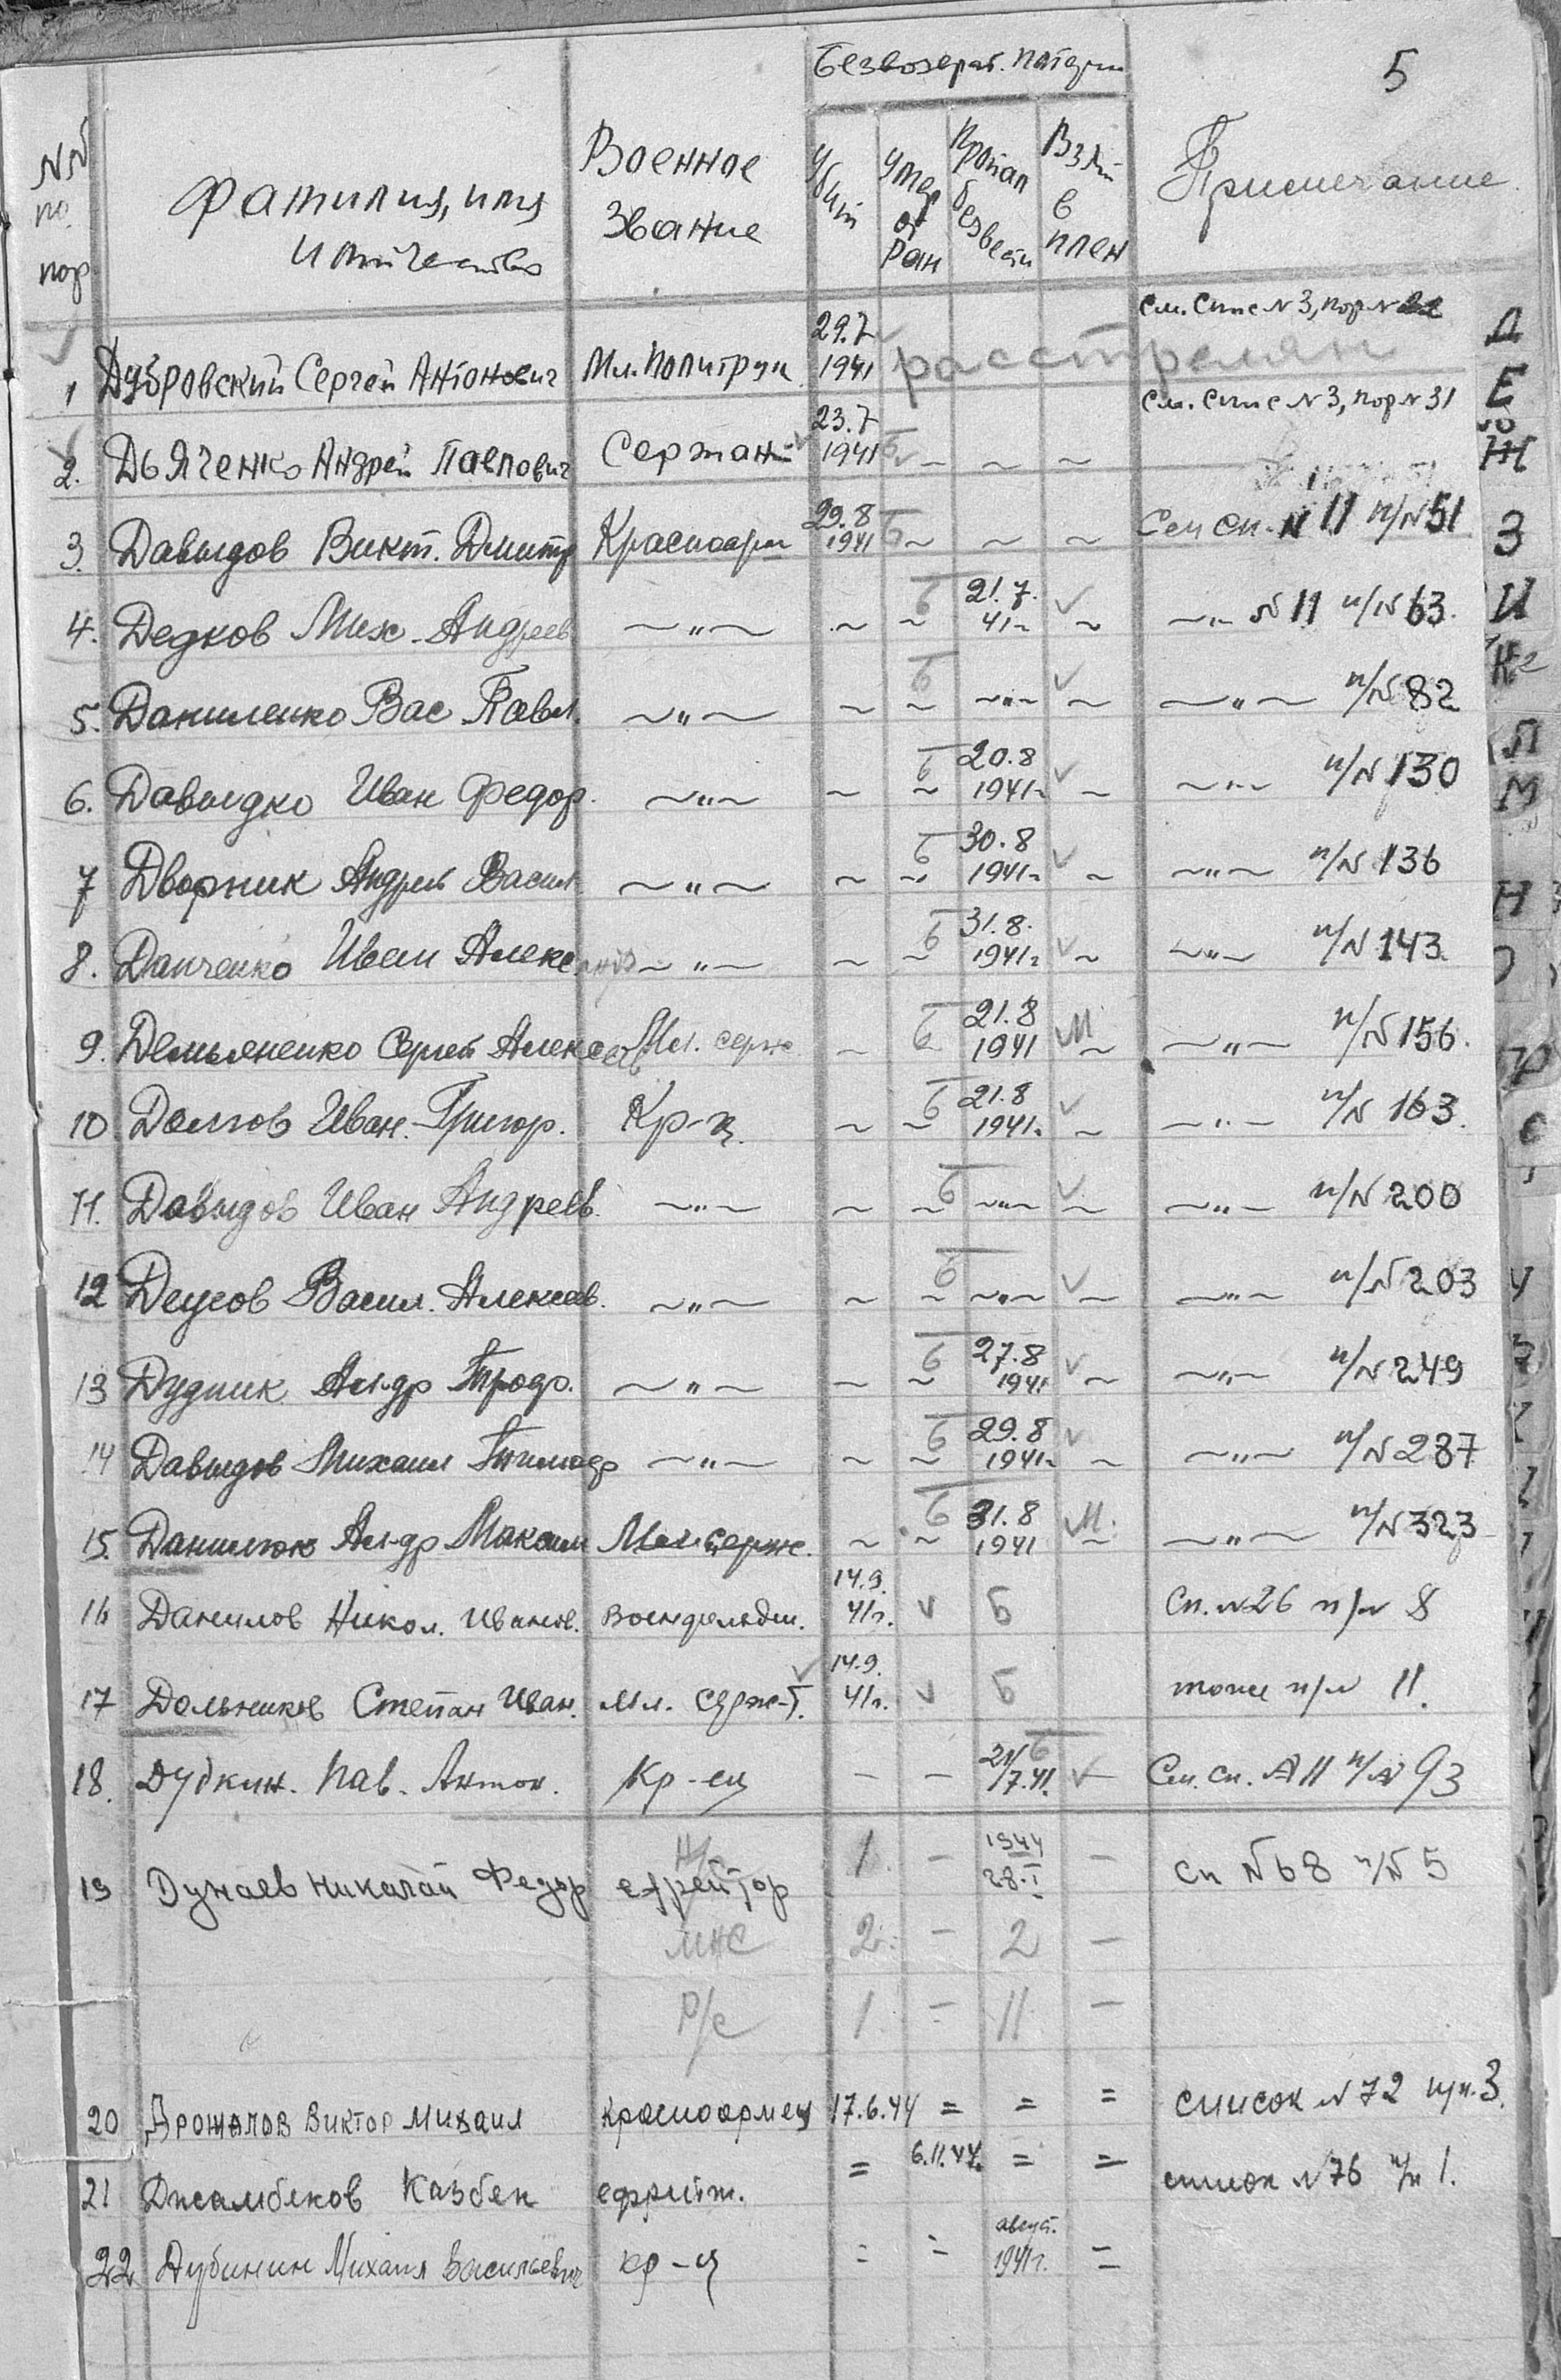 5
Безвозврат. потери
№№ по пор
Фамилия, имя и отчество
Военное звание
Убит
Умер от ран
Пропал без вести
Взят в плен
Примечание
См. спис N 3, пор N
1 Дубровский Сергей Антонович Мл. Политрук 29.7 1941 расстрелян
См. спис N 3, пор N 31
2. Дьяченко Андрей Павлович Сержант 23.7 1941 Б ~ ~ ~
3. Давыдов Викт. Дмитр Красноарм 29.8 1941 Б ~ ~ ~ См сп. N 11 п/N 51
4. Дедков Мих. Андреев ~"~ ~ ~ Б 21.7. 41г ~ ~"~ N 11 п/N 63.
5. Даниленко Вас Павл. ~"~ ~ ~ Б ~"~ ~ ~"~ п/N 82
6. Давыдко Иван Федор. ~"~ ~ ~ Б 20.8 1941г ~ ~"~ п/N 130
7 Дворник Андрей Васил ~"~ ~ ~ Б 30.8 1941г ~ ~"~ п/N 136
8. Данченко Иван Алекс андр ~"~ ~ ~ Б 31.8. 1941г ~ ~"~ п/N 143.
9. Демьяненко Сергей Алексеев Мл. серж. ~ ~ Б 21.8 1941 М ~ ~"~ п/N 156.
10 Долгов Иван. Григор. Кр-ц. ~ ~ Б 21.8 1941г ~ ~"~ п/N 163.
11. Давыдов Иван Андреев. ~"~ ~ ~ Б ~"~ ~ ~"~ п/N 200
12 Деусов Васил. Алексеев. ~"~ ~ ~ Б ~"~ ~ ~"~ п/N 203
13 Дудник Ал-др Продр. ~"~ ~ ~ Б 27.8 1941 ~ ~"~ п/N 249
14 Давыдов Михаил ~"~ ~ ~ Б 29.8 1941г ~ ~"~ п/N 287
15. Данилюк Ал-др Максим Мл. серж. ~ ~ Б 31.8 1941 М. ~ ~"~ п/N 323
16 Данилов Никол. Иванов. военфельдш. 14.9. 41г. Б Сп. N 26 п/N 8
17 Дольников Степан Иван. мл. серж-т. 14.9. 41г. Б тоже п/N 11.
18. Дудкин. Пав. Антон. Кр-ец — — 21/7.41. Б — См. сп. N 11 п/N 93
Н/с 1 — —
19 Дунаев Николай Федор ефрейтор 1944 28.I Сп N 68 п/N 5
МНС 2 — 2 —
Р/с 1 — 11 —
20 Дрожалов Виктор Михаил красноармец 17.6.44 = = = список N 72 п/п. 3.
21 Джамбеков Казбек ефрейт. = 6.11.44г. = = список N 76 п/п 1.
22 Дубинин Михаил Васильевич кр-ц = = август. 1941г. =
Д
Е
Ж
З
И
К
Л
М
Н
О
П
Р
С
У